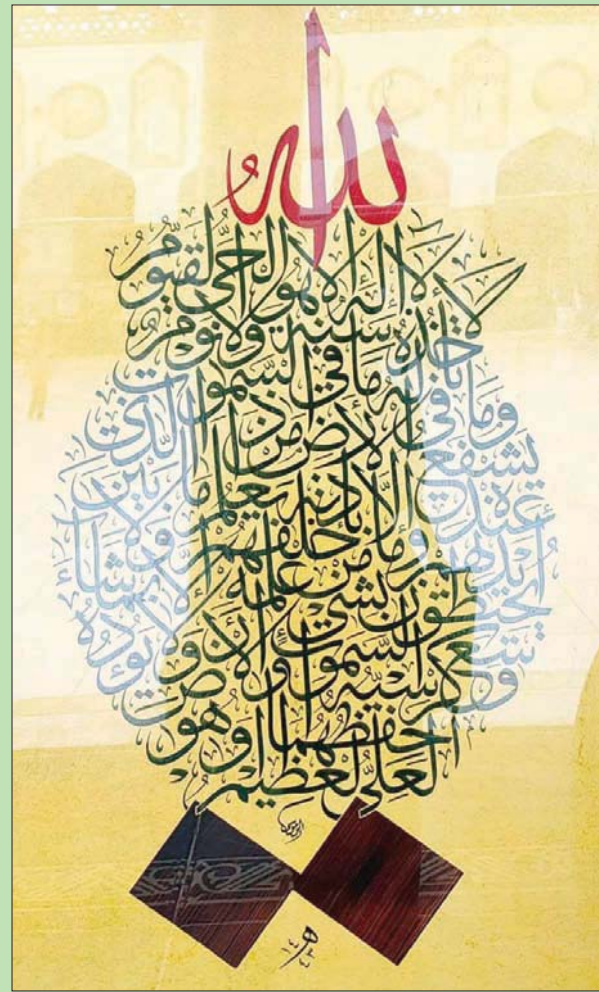 الله
لَا إله إلا هو الحيُّ القيّومُ
لَا تأخذه سنة ولا نوم
له ما في السّموات
وما في الأرض من ذا الّذي
يشفع عنده إلّا بإذنه يعلم ما بين
أيديهم وما خلفهم ولا
يحيطون بشئ من علمه إلا بما شاء
وسع كرسيه السموات والأرض ولا يؤده
حفظهما وهو
العليُّ العظيم